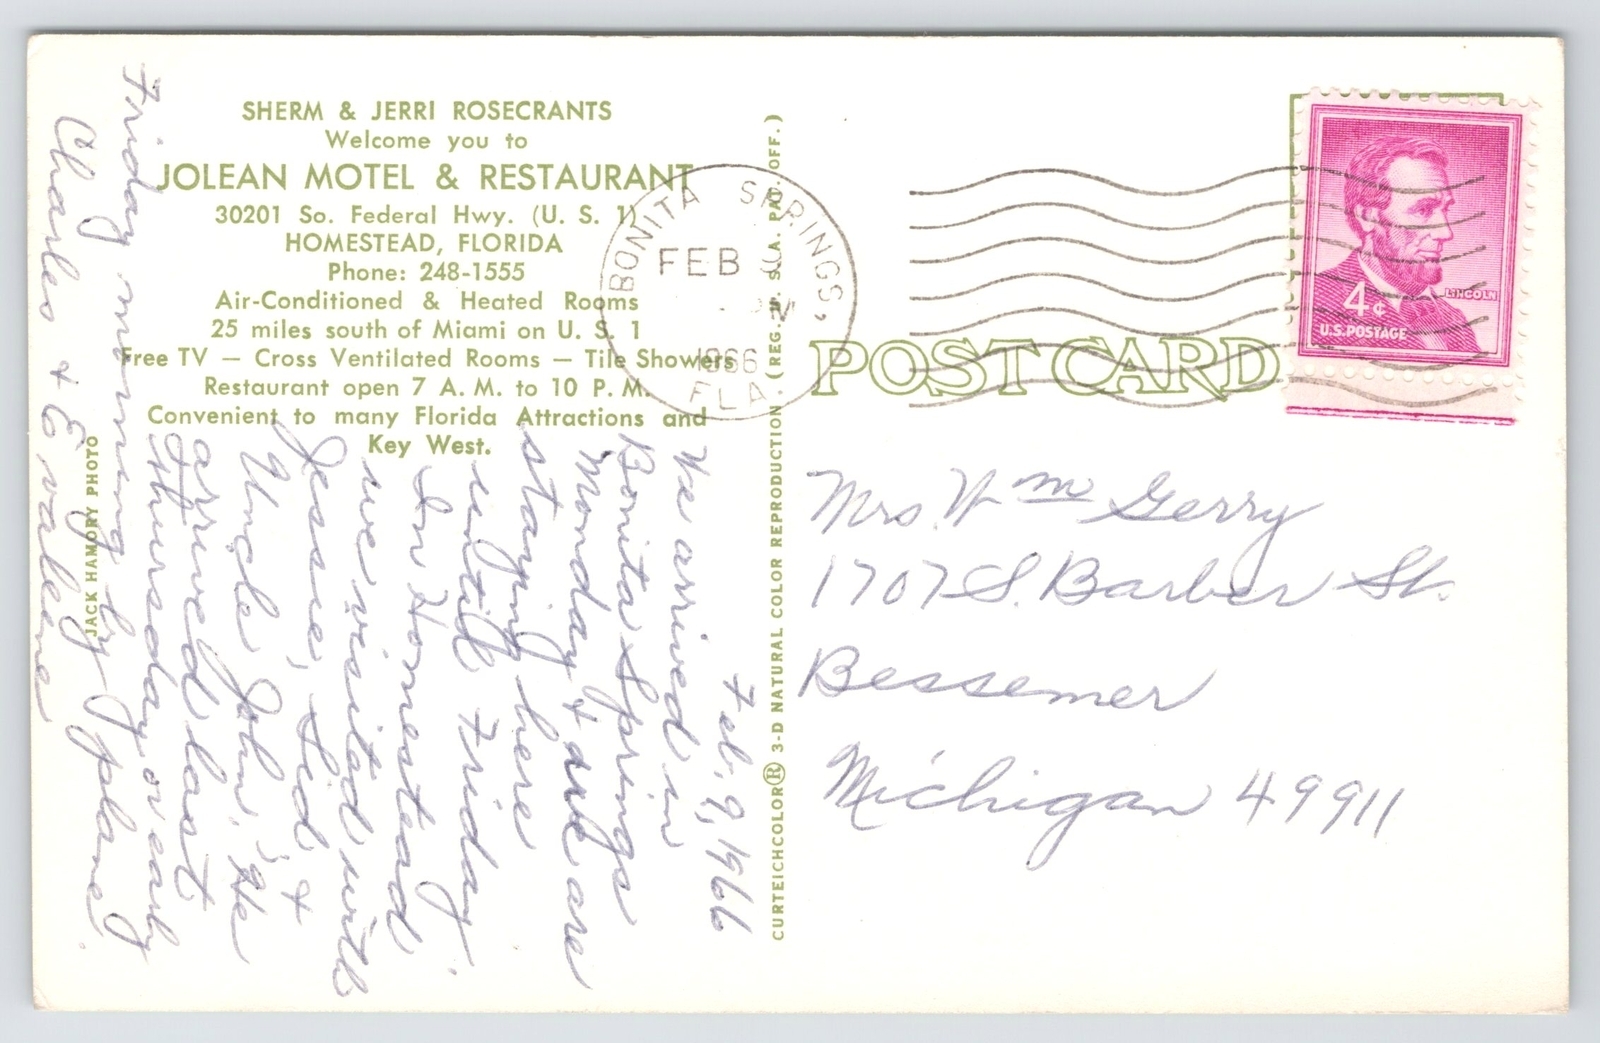 SHERM & JERRI ROSECRANTS
Welcome you to
JOLEAN MOTEL & RESTAURANT
30201 So. Federal Hwy. (U. S. 1)
HOMESTEAD, FLORIDA
Phone: 248-1555
Air-Conditioned & Heated Rooms
25 miles south of Miami on U. S. 1
Free TV — Cross Ventilated Rooms — Tile Showers
Restaurant open 7 A. M. to 10 P. M.
Convenient to many Florida Attractions and
Key West.
JACK HAMORY PHOTO
Feb. 9, 1966
We arrived in
Bonita Springs
Monday & are
staying here
until Friday.
In Homestead
we visited with
Jessie, Sid &
Uncle John. He
arrived last
Thursday or early
Friday morning by plane.
Charles & Evalene
CURTEICHCOLOR® 3-D NATURAL COLOR REPRODUCTION (REG. U. S. A. PAT. OFF.)
BONITA SPRINGS,
FEB
PM
1966
FLA.
POST CARD
4¢
LINCOLN
U.S. POSTAGE
Mrs. Wm Gerry
1707 S. Barber St.
Bessemer
Michigan 49911